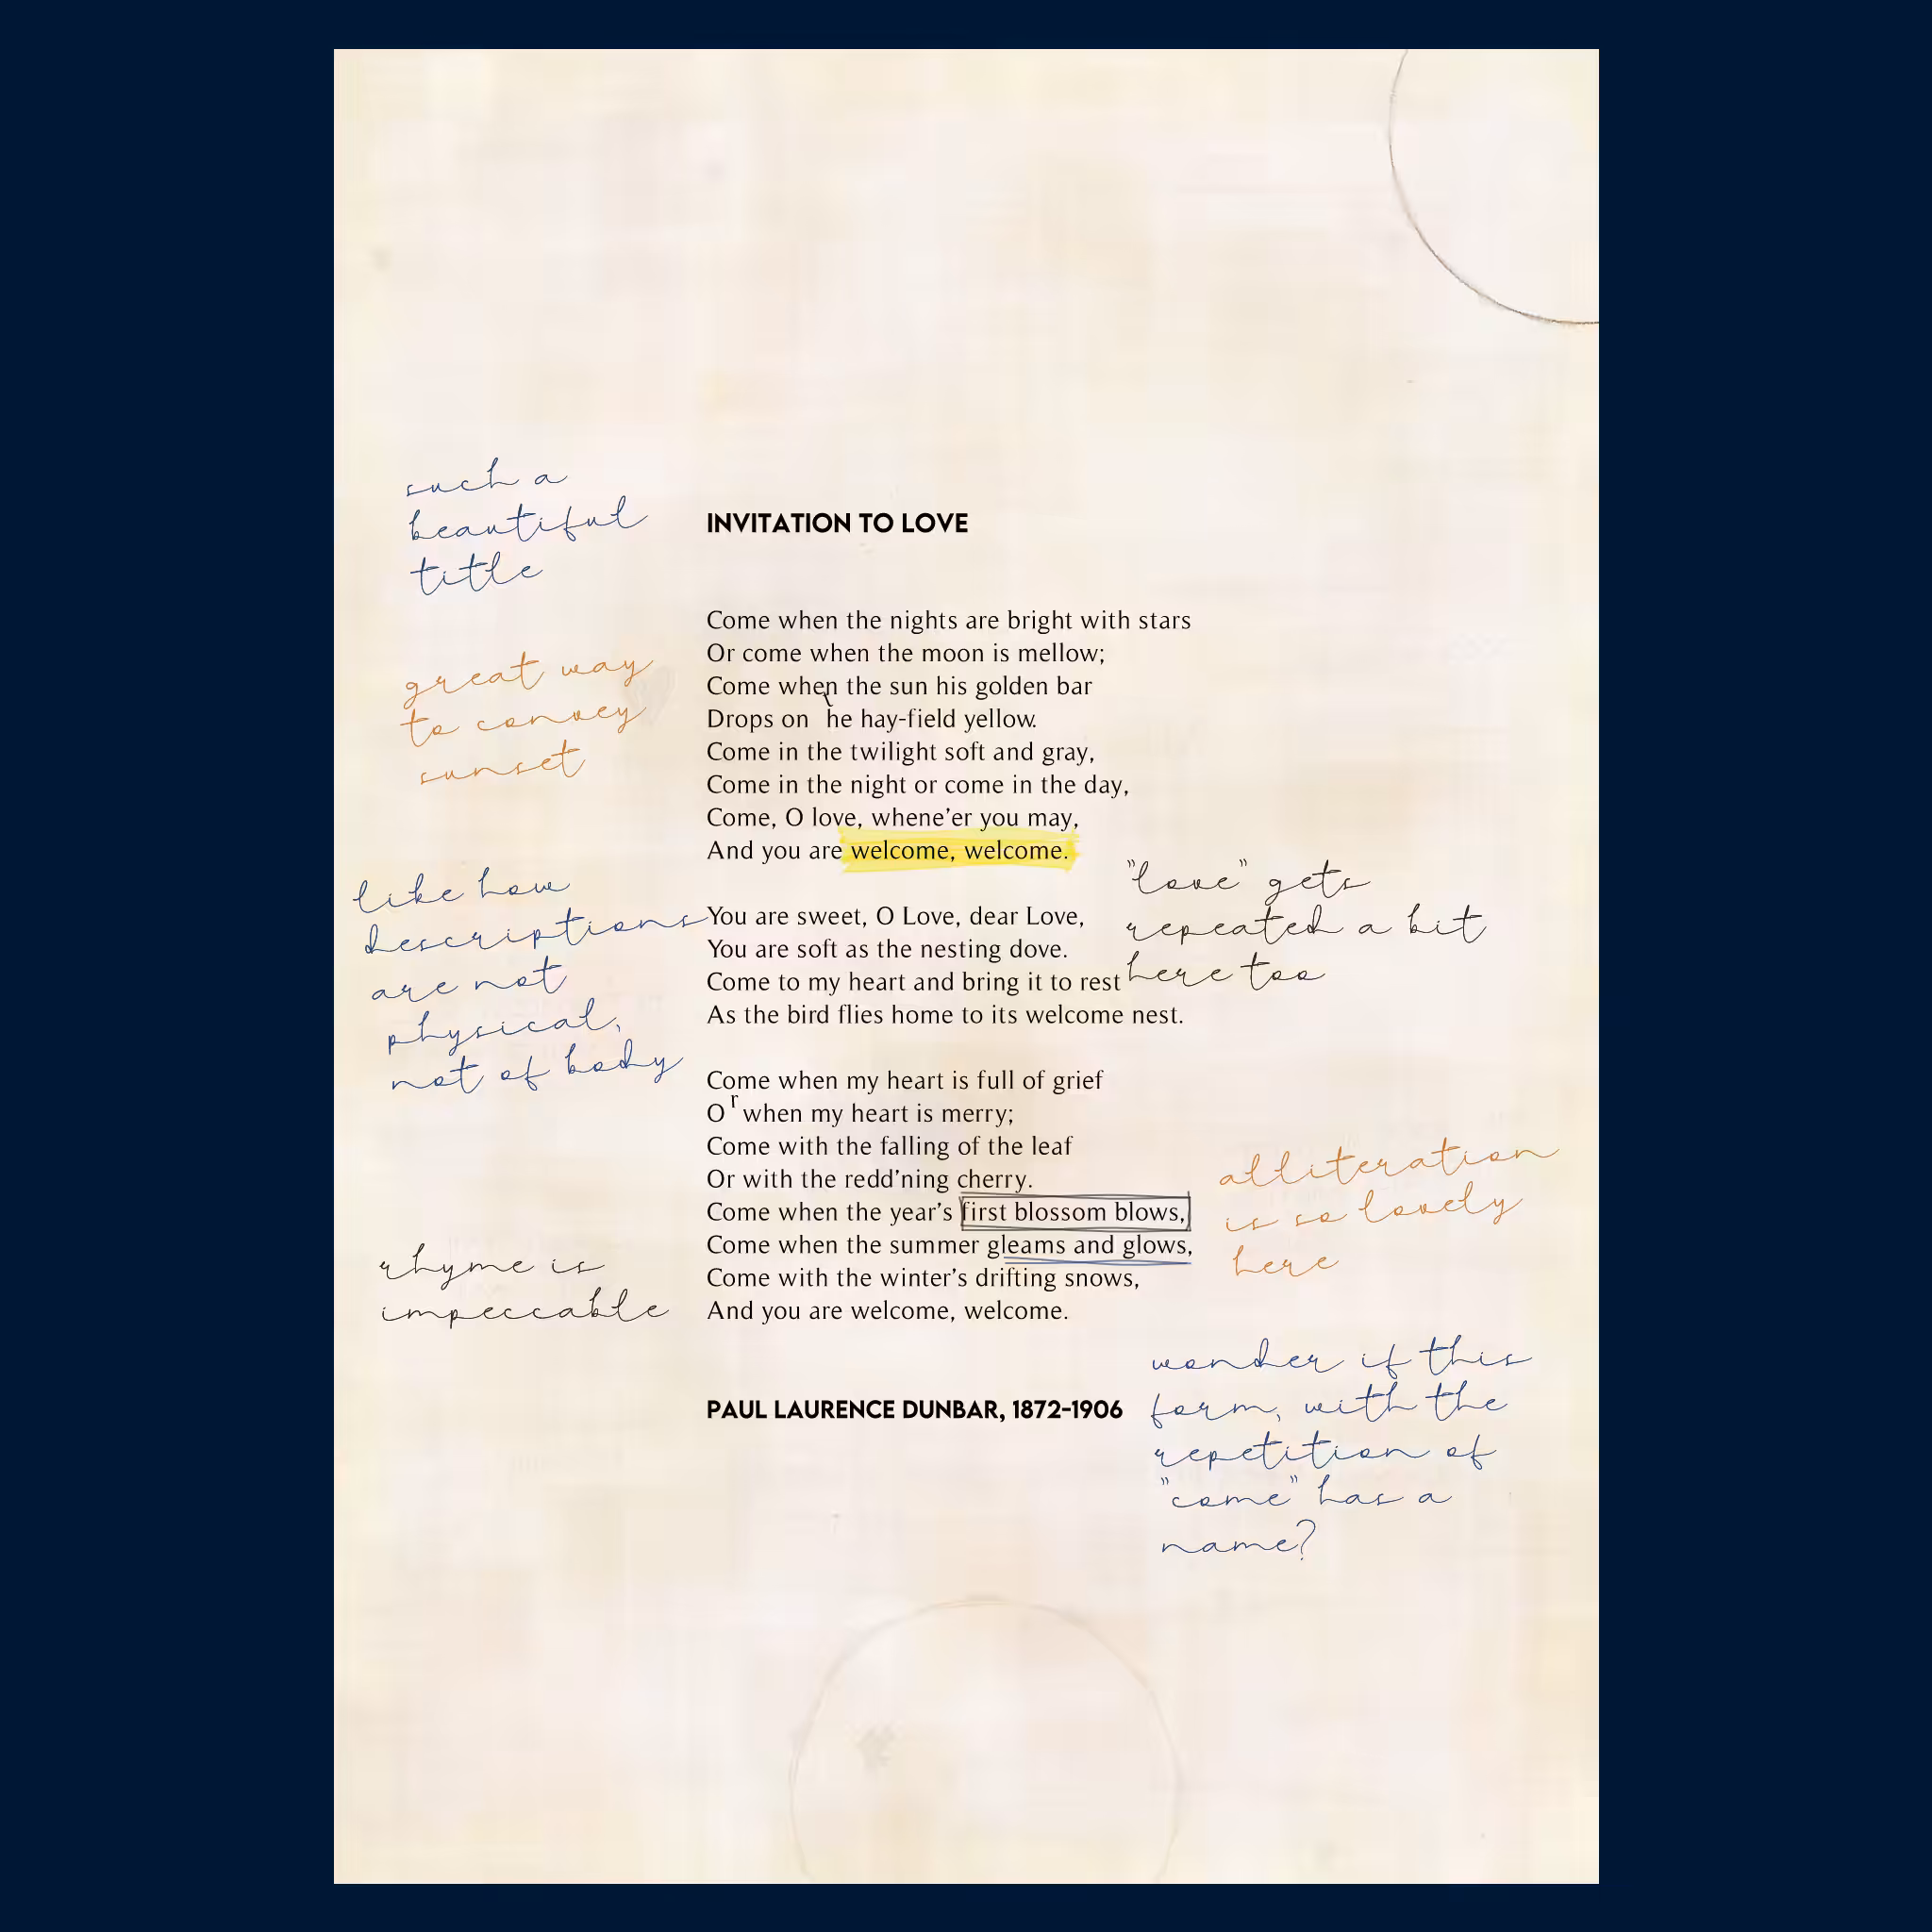 such a
beautiful
title
INVITATION TO LOVE
Come when the nights are bright with stars
Or come when the moon is mellow;
Come when the sun his golden bar
Drops on the hay-field yellow.
Come in the twilight soft and gray,
Come in the night or come in the day,
Come, O love, whene’er you may,
And you are welcome, welcome.
great way
to convey
sunset
You are sweet, O Love, dear Love,
You are soft as the nesting dove.
Come to my heart and bring it to rest
As the bird flies home to its welcome nest.
"love" gets
repeated a bit
here too
like how
descriptions
are not
physical,
not of body
Come when my heart is full of grief
Or when my heart is merry;
Come with the falling of the leaf
Or with the redd’ning cherry.
Come when the year’s first blossom blows,
Come when the summer gleams and glows,
Come with the winter’s drifting snows,
And you are welcome, welcome.
alliteration
is so lovely
here
rhyme is
impeccable
PAUL LAURENCE DUNBAR, 1872-1906
wonder if this
form, with the
repetition of
"come" has a
name?